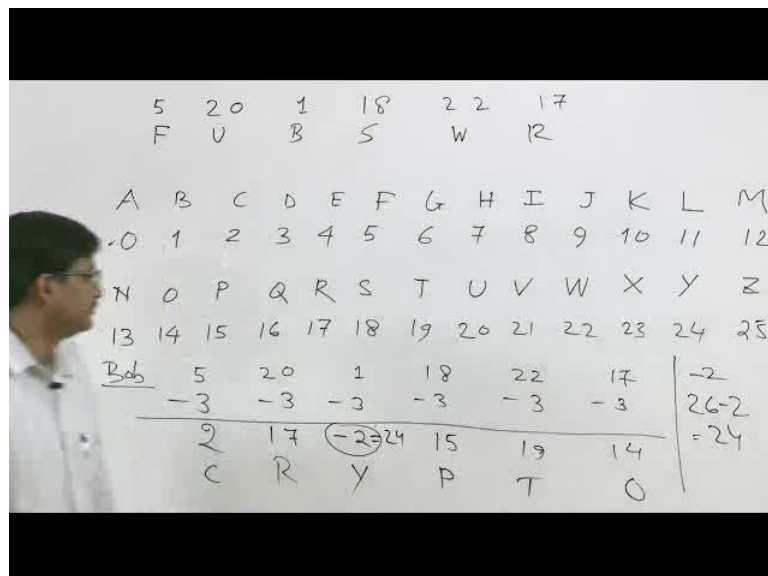 5 20 1 18 22 17
F U B S W R
A B C D E F G H I J K L M
0 1 2 3 4 5 6 7 8 9 10 11 12
N O P Q R S T U V W X Y Z
13 14 15 16 17 18 19 20 21 22 23 24 25
Bob 5 20 1 18 22 17 -2
-3 -3 -3 -3 -3 -3 26-2
2 17 -2=24 15 19 14 =24
C R Y P T O